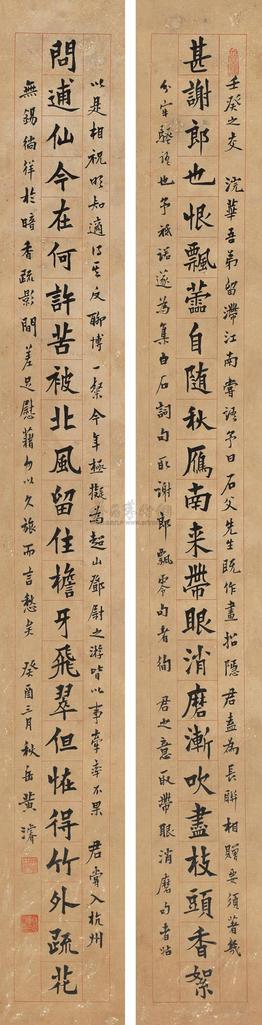 壬癸之交 浣華吾弟留滯江南嘗語予曰石父先生既作畫招隱君盍為長聯相贈要須著幾
甚謝郎也恨飄蕶自隨秋雁南来帶眼消磨漸吹盡枝頭香絮
分牢騷語也予祇諾遂為集白石詞句取謝郎飄零句者徇 君之意取帶眼消磨句者
以是相祝明知適得其反聊博一粲今年極擬為超山鄧尉之游皆以事牽率不果 君嘗入杭州
問逋仙今在何許苦被北風留住檐牙飛翠但恠得竹外疏花
無錫徜徉於暗香疏影間差足慰藉勿以久旅而言愁矣 癸酉三月秋岳黃濬